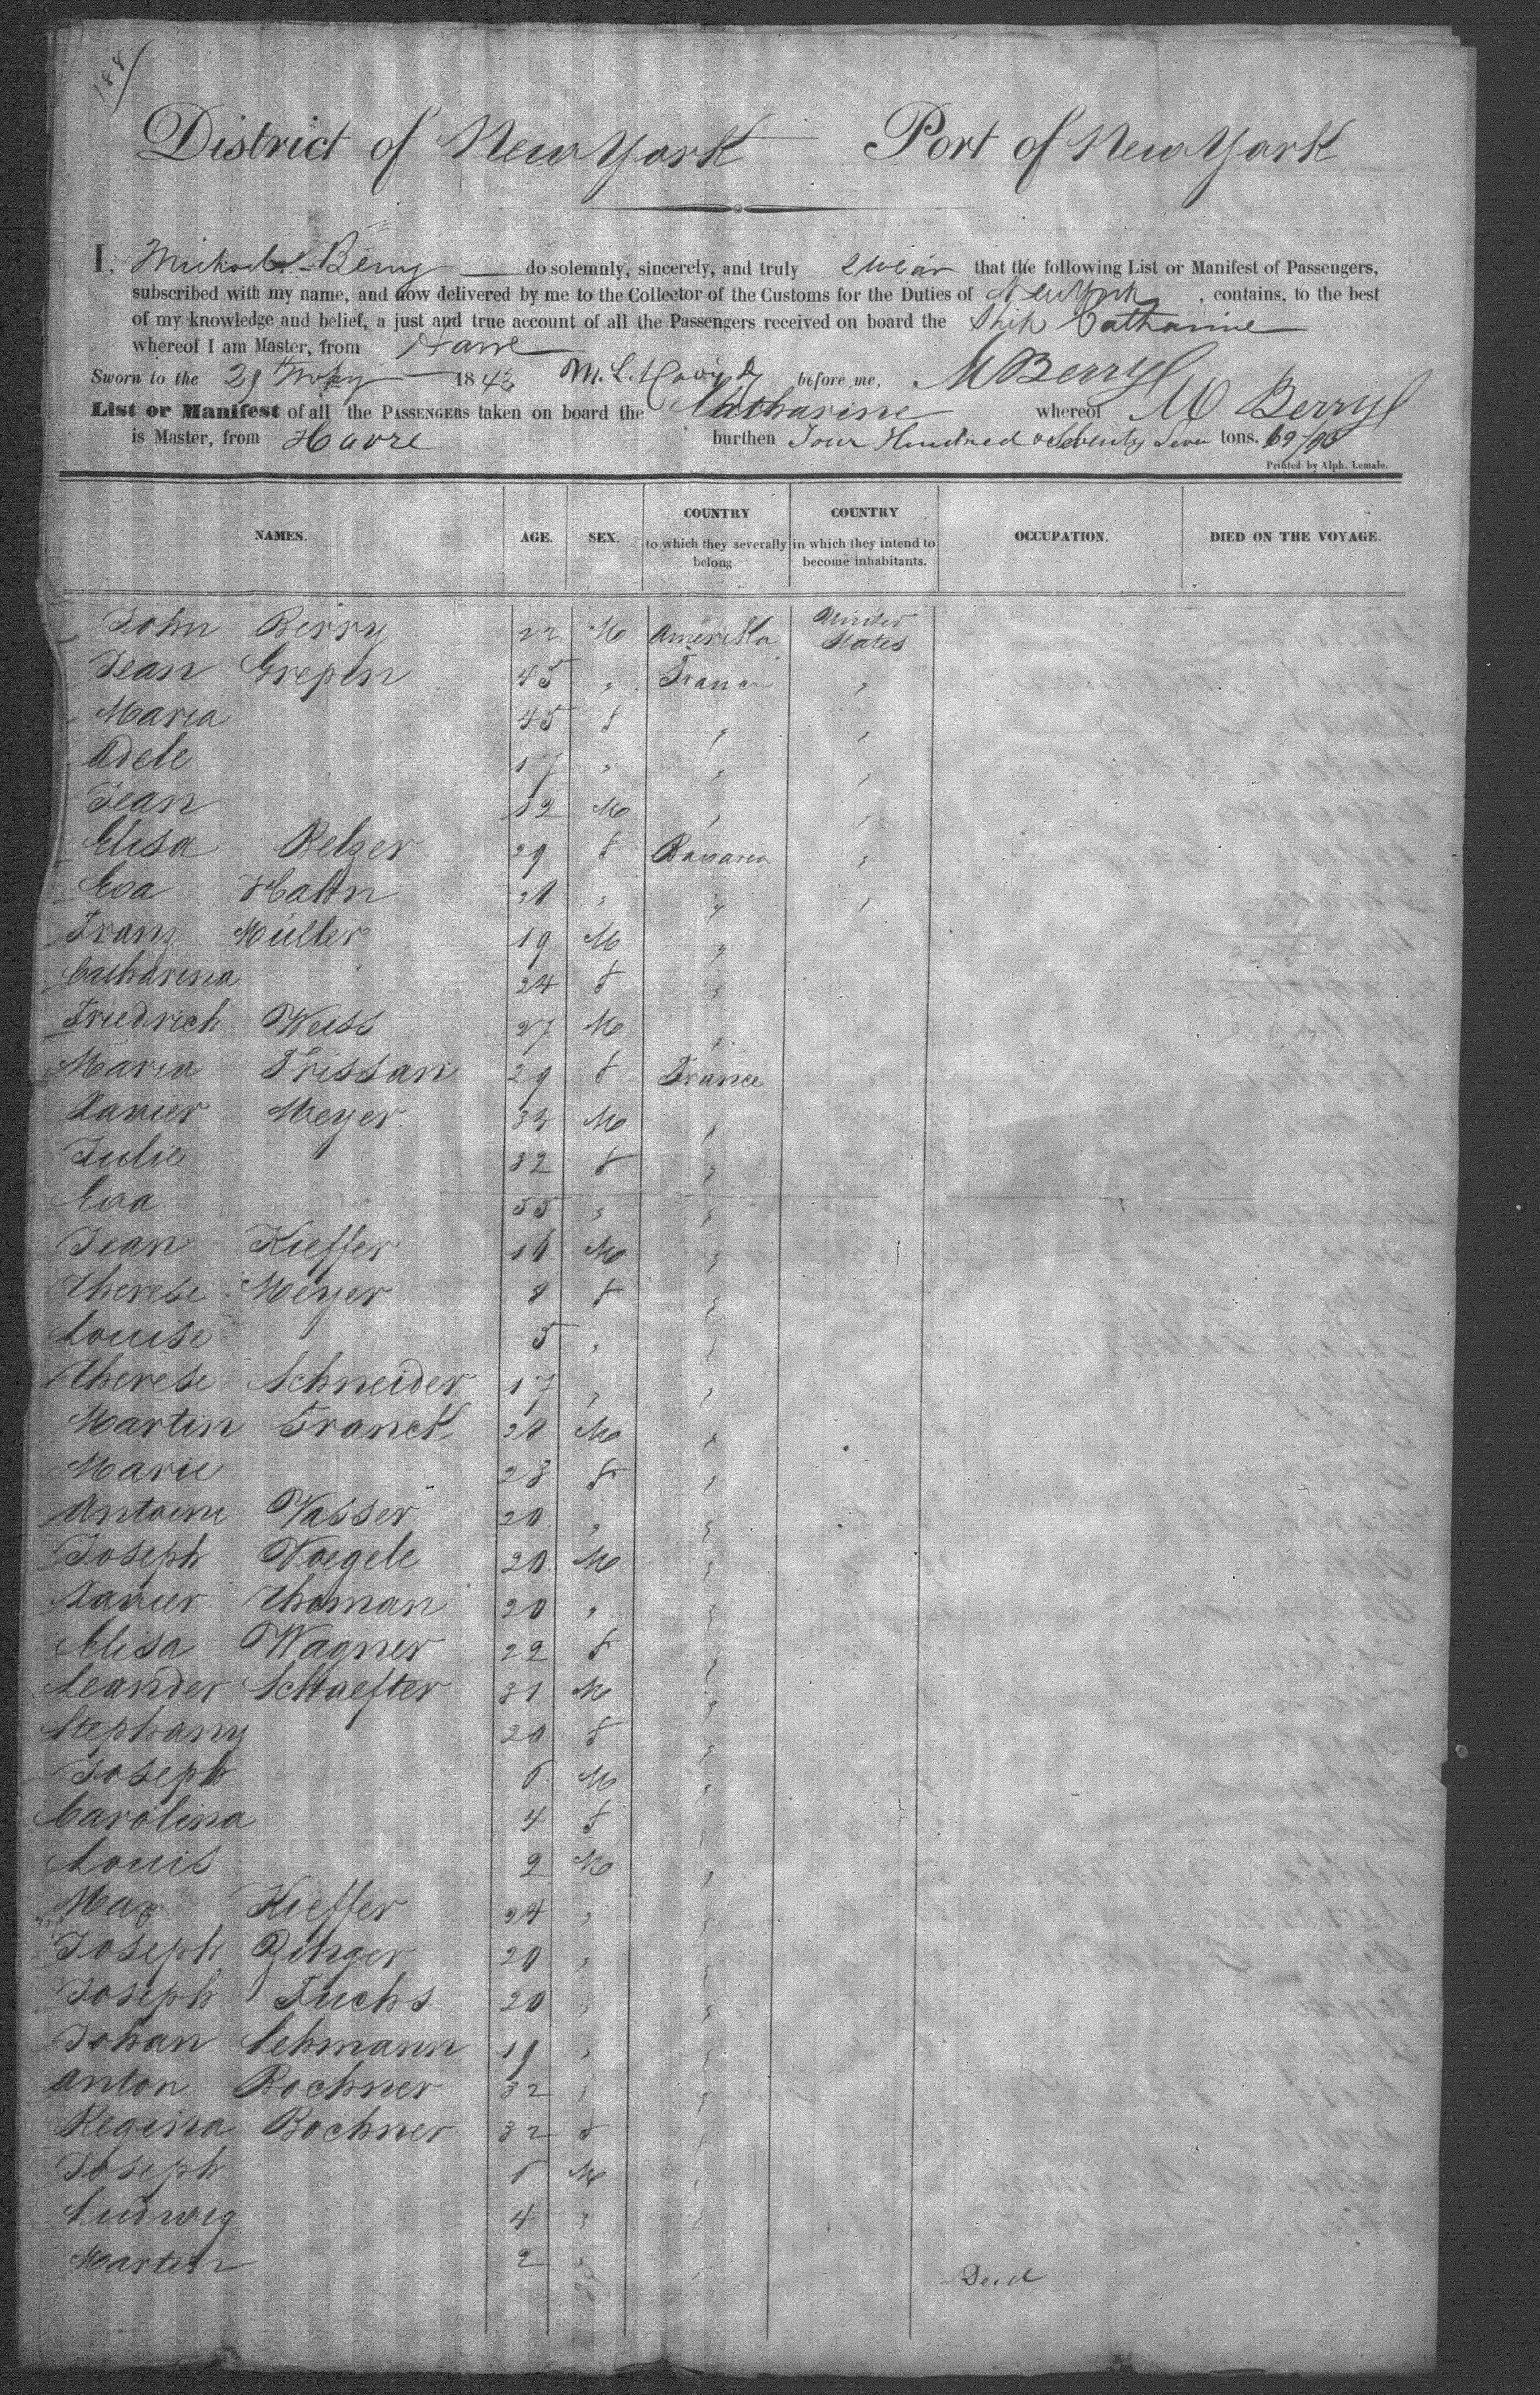 188
District of New York Port of New York
I, Michael Berry do solemnly, sincerely, and truly swear that the following List or Manifest of Passengers,
subscribed with my name, and now delivered by me to the Collector of the Customs for the Duties of New York, contains, to the best
of my knowledge and belief, a just and true account of all the Passengers received on board the Ship Catharine
whereof I am Master, from Havre
Sworn to the 29th May 1843 before me, M Berry
List or Manifest of all the PASSENGERS taken on board the Catharine whereof M Berry
is Master, from Havre burthen Four Hundred & Seventy Seven tons. 69/95
Printed by Alph. Lemale.
NAMES. AGE. SEX. COUNTRY to which they severally belong COUNTRY in which they intend to become inhabitants. OCCUPATION. DIED ON THE VOYAGE.
John Berry 22 M Amerika United States
Jean Grepin 45 " France "
Maria 45 f " "
Adele 17 " " "
Jean 12 M " "
Elisa Belzer 29 f Bavaria "
Eva Hahn 28 " " "
Franz Müller 19 M "
Catharina 24 f "
Friedrich Weiss 27 M "
Maria Trissan 29 f France
Xavier Meyer 35 M "
Julie 32 f "
Eva 55 " "
Jean Kieffer 16 M "
Therese Meyer 8 f "
Louise 5 " "
Therese Schneider 17 " "
Martin Franck 28 M "
Marie 23 f "
Antoine Vasser 20 " "
Joseph Voegele 20 M "
Xavier Thoman 20 " "
Elisa Wagner 22 f "
Leander Schaeffer 31 M "
Stephany 28 f "
Joseph 6 M "
Carolina 4 f "
Louis 2 M "
Max Kieffer 24 " "
Joseph Zinger 20 " "
Joseph Fuchs 20 " "
Johan Lehmann 19 " "
Anton Bochner 32 " "
Regina Bochner 32 f "
Joseph 6 M "
Ludwig 4 " "
Martin 2 " " Died